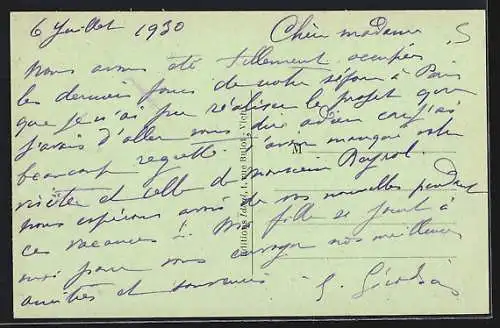 6 Juillet 1930 Chère madame
Nous avons été tellement occupés
les derniers jours de notre séjour à Paris
que je n'ai pu réaliser le projet que
j'avais d'aller vous dire adieu et j'ai
beaucoup regretté d'avoir manqué votre
visite et celle de monsieur Reynol.
nous espérons avoir de vos nouvelles pendant
ces vacances !! Ma fille se joint à
moi pour vous envoyer nos meilleures
amitiés et souvenirs G.
M
Editions 1, rue Butot,